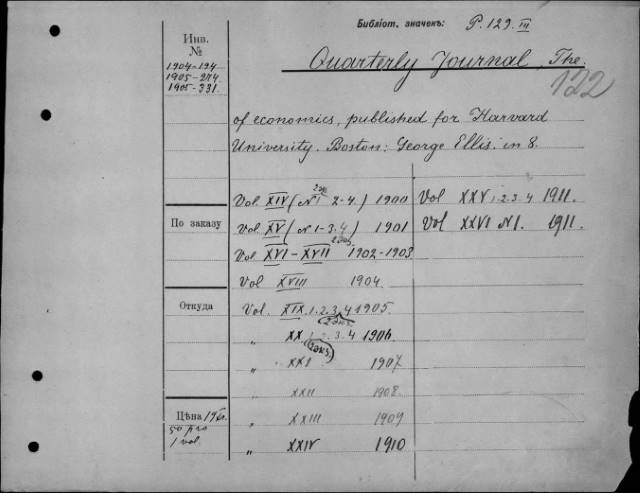 Библіот. значекъ: P. 129. III
Инв. №
1904-194
1905-274
1905-331.
Quarterly Journal, The.
122
of economics, published for Harvard
University. Boston: George Ellis. in 8.
Vol. XIV (N1 2-4.) 1900
2 экз
Vol XV (N 1-3.4) 1901
Vol XVI-XVII 1902-1903
2 экз.
Vol XVIII 1904.
Vol. XIX. 1.2.3.4 1905.
2 экз.
„ XX 1.2.3.4 1906
2 экз.
„ XXI 1907
XXII 1908.
„ XXIII 1909
„ XXIV 1910
Vol XXV 1.2.3.4 1911.
Vol XXVI N1. 1911.
По заказу
Откуда
Цѣна
1 vol.